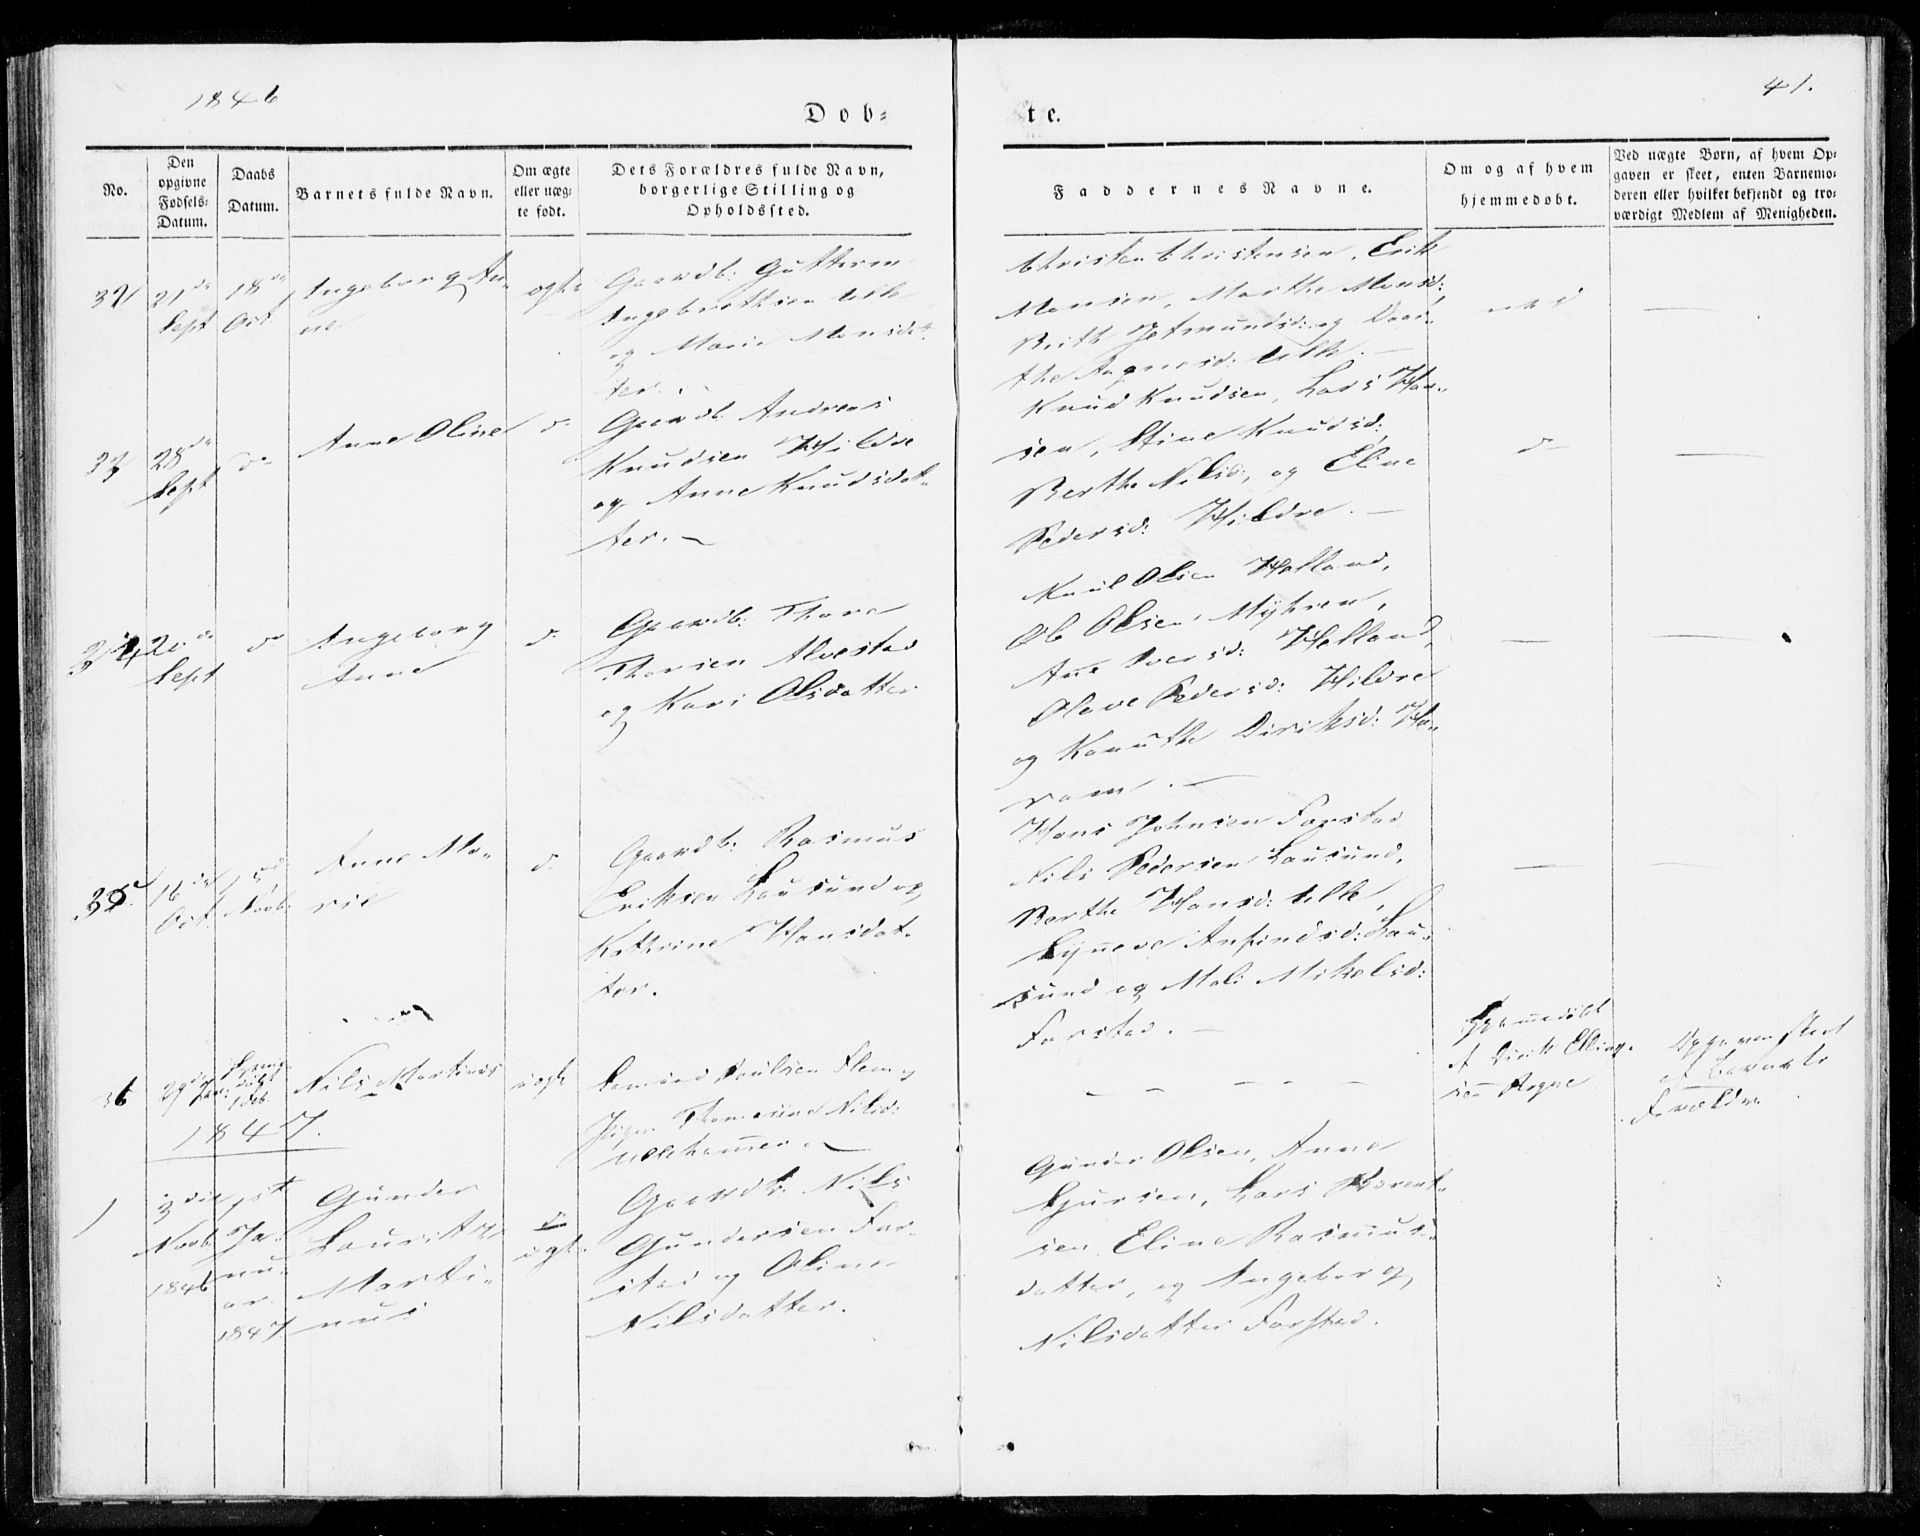 1846
41.
Dob-
te.
No.
Den
opgivne
Fødsels-
Datum.
Daabs
Datum.
Barnets fulde Navn.
Om ægte
eller uæg-
te født.
Dets Forældres fulde Navn,
borgerlige Stilling og
Opholdssted.
Faddernes Navne.
Om og af hvem
hjemmedøbt.
Ved uægte Børn, af hvem Op-
gaven er skeet, enten Barnemo-
deren eller hvilket bekjendt og tro-
værdigt Medlem af Menigheden.
21de
Sept
18de
Oct
Ingeborg An-
ne
ægte
Gaardb: Guttorm
Ingebrethsen Ulle
og Marie Monsdat-
ter.
Christen Christensen, Erik
Monsen, Marthe Monsd:
Brith Jetmundsd: og Dor-
the Aagesd: Ulle.
33
28de
Sept
do
Anne Oline
do
Gaardb: Andreas
Knudsen Hildre
og Anne Knudsdat-
ter.
Knud Knudsen, Lars Han-
sen, Stine Knudsd:
Berthe Nilsd:, og Eline
Pedersd: Hildre.
do
34
20de
Sept
do
Ingeborg
Anne
do
Gaardb: Thore
Thorsen Alvestad
og Kari Olsdatter
Olsen Helland,
Ole Olsen Myhren,
Ane Iversd: Helland,
Olave Pedersd: Hildre
og Kanuthe Diriksd: Ha-
ram.
35
16de
Oct.
1ste
Novb:
Anne Ma-
rie
do
Gaardb: Rasmus
Eriksen Lausund og
Kathrine Hansdat-
ter.
Hans Johnsen Farstad
Nils Pedersen Lausund,
Berthe Hansd: Ulle,
Synneve Anfindsd: Lau-
sund og Mali Mikelsd:
Farstad.
36
29de
Nils Martinus
uægte
Poulsen Flem og
Thomasine Nilsd:
Ullehammer
Hjemmedøbt
af Dirik Elling-
sen Rogne
Opgaven skeet
af Barnets
Forældre
1847.
1
3die
Novb
1846
1st
Ja-
nu-
ar
1847
Gunder
Lauritz
Marti-
nus
ægte
Gaardb: Nils
Gundersen Far-
stad og Oline
Nilsdatter.
Gunder Olsen, Anne
Sjursen, Lars Berent-
sen, Eline Rasmus-
datter, og Ingeborg
Nilsdatter Farstad.